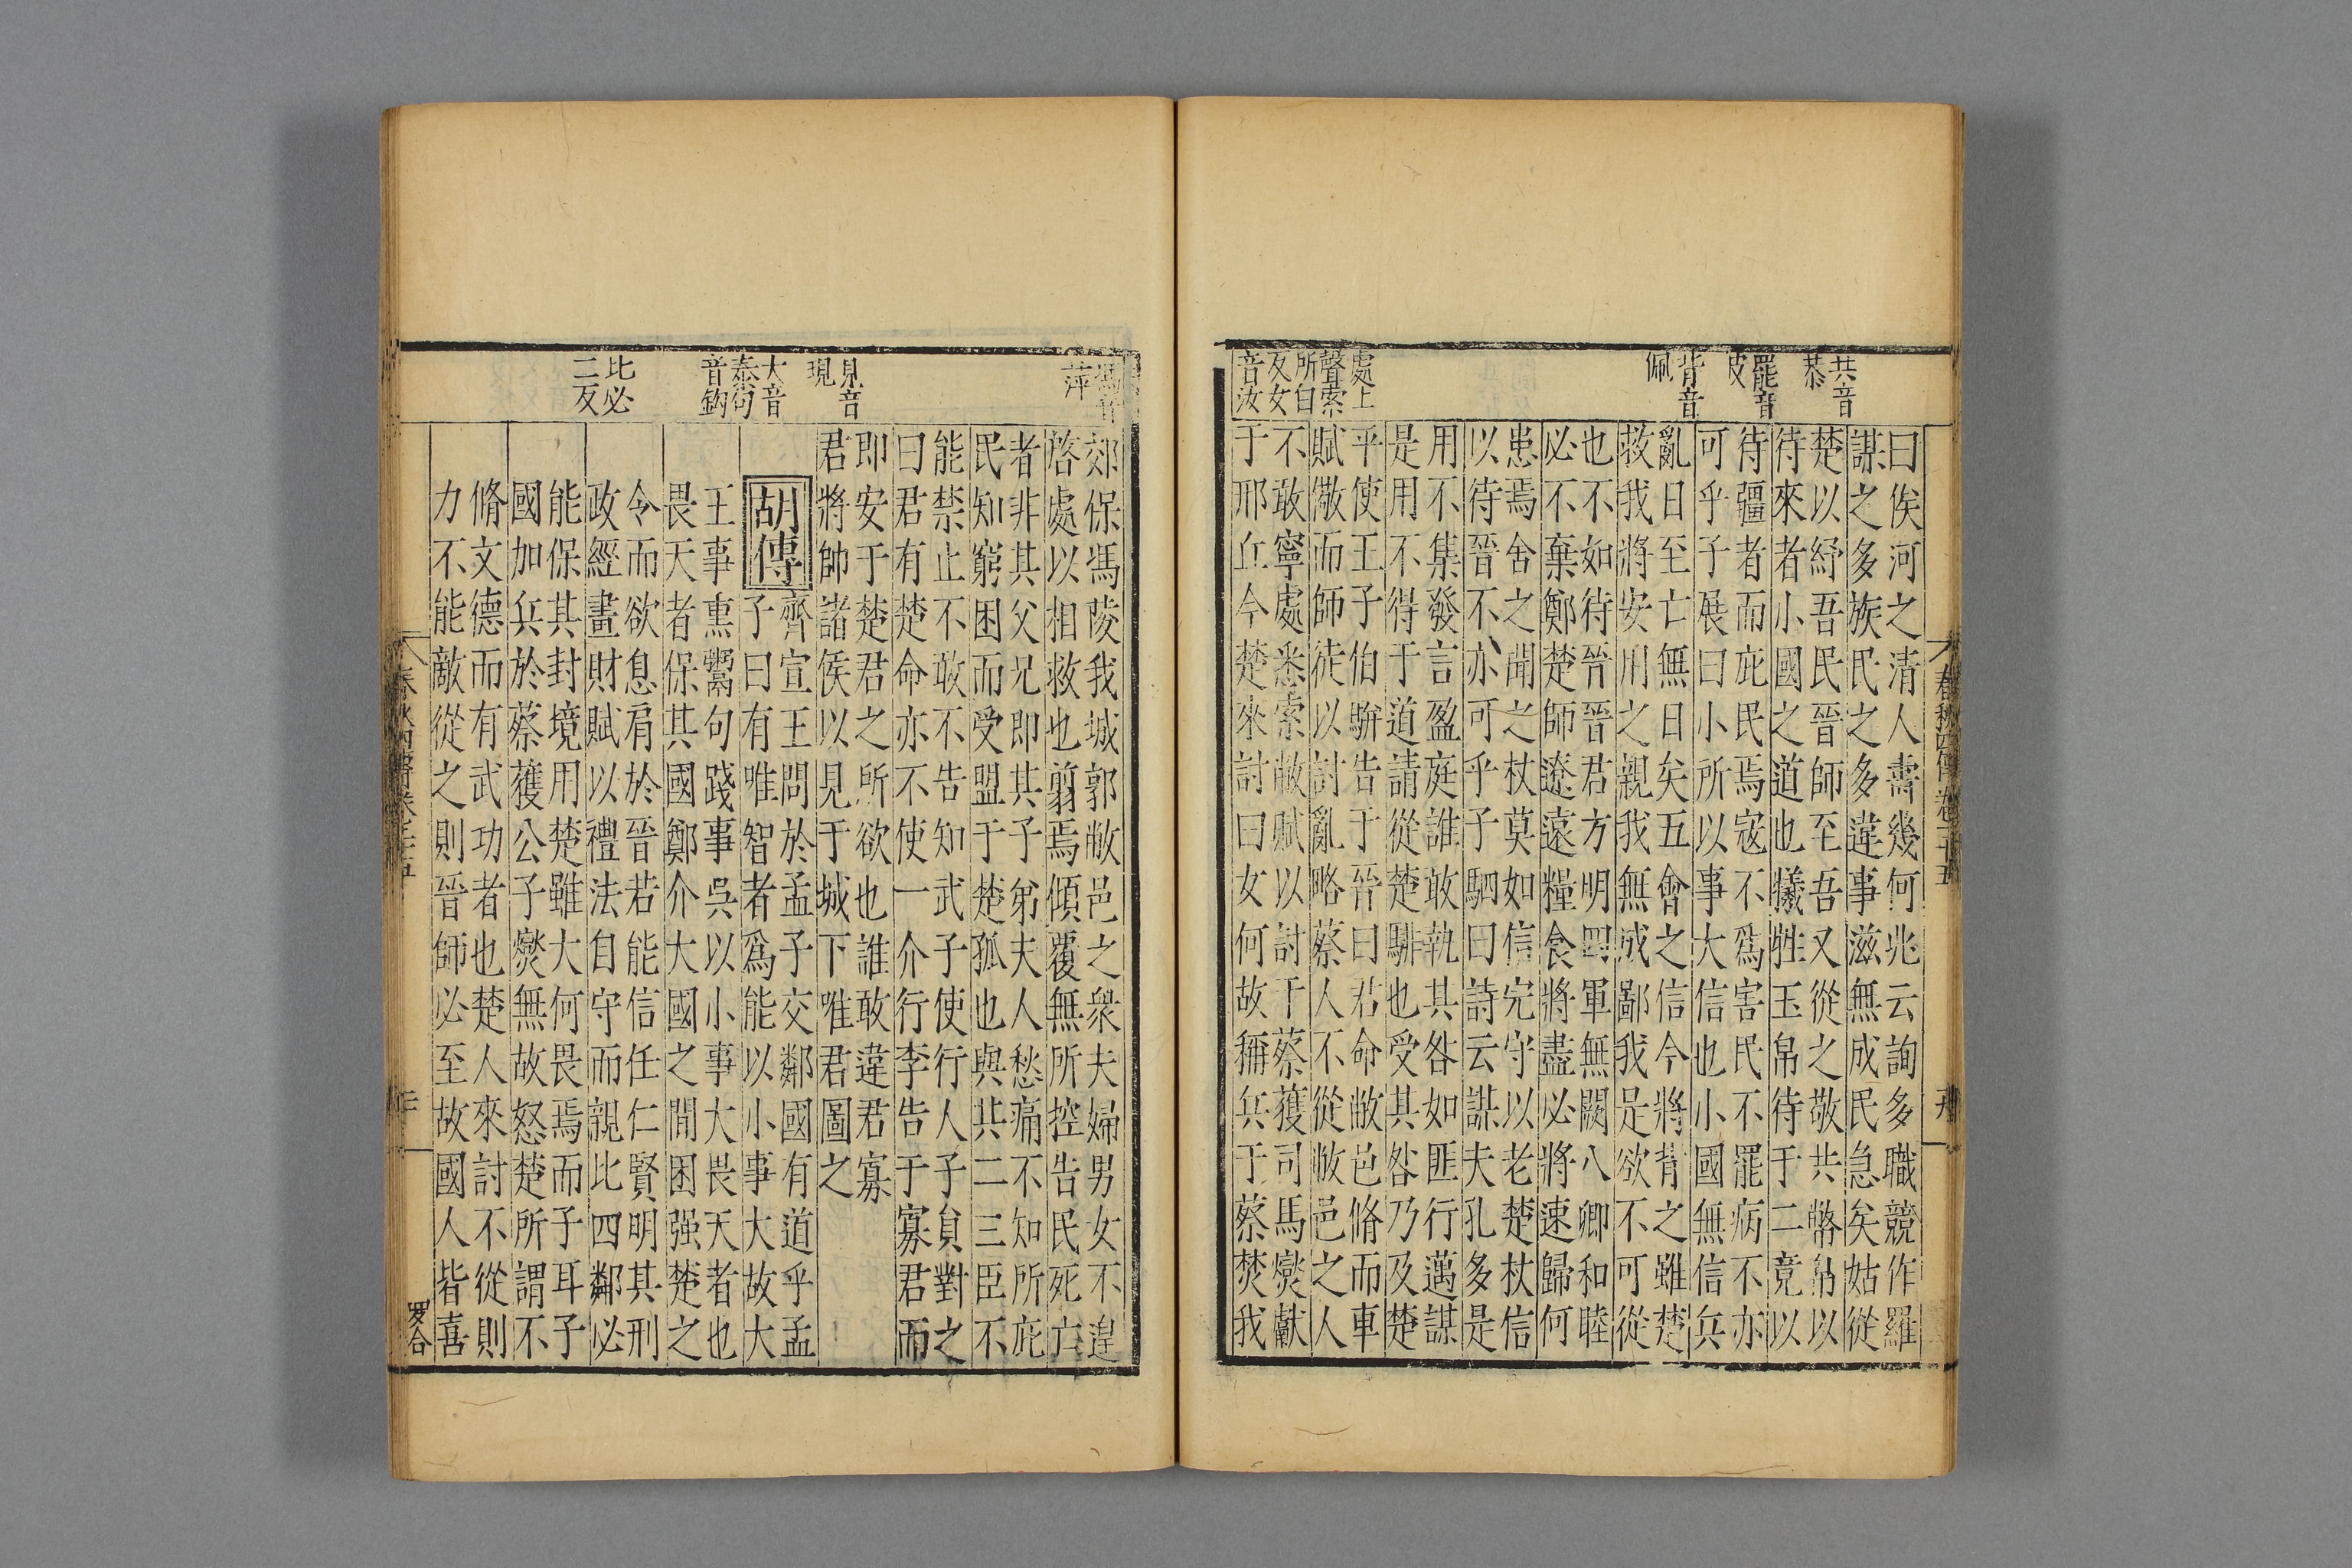 共音
恭
罷音
皮
背音
佩
處上
聲索
所白
反女
音汝
曰俟河之清人壽幾何兆云詢多職競作羅
謀之多族民之多違事滋無成民急矣姑從
楚以紓吾民晉師至吾又從之敬共幣帛以
待來者小國之道也犧牲玉帛待于二竟以
待疆者而庇民焉寇不爲害民不罷病不亦
可乎子展曰小所以事大信也小國無信兵
亂日至亡無日矣五會之信今將背之雖楚
救我將安用之親我無成鄙我是欲不可從
也不如待晉晉君方明四軍無闕八卿和睦
必不棄鄭楚師遼遠糧食將盡必將速歸何
患焉舍之聞之杖莫如信完守以老楚杖信
以待晉不亦可乎子駟曰詩云謀夫孔多是
用不集發言盈庭誰敢執其咎如匪行邁謀
是用不得于道請從楚騑也受其咎乃及楚
平使王子伯駢告于晉曰君命敝邑脩而車
賦儆而師徒以討亂略蔡人不從敝邑之人
不敢寧處悉索敝賦以討于蔡獲司馬燮獻
于邢丘今楚來討曰女何故稱兵于蔡焚我
春秋四傳卷二十五
馮音
萍
見音
現
大音
泰句
音鉤
比必
二反
郊保馮陵我城郭敝邑之衆夫婦男女不遑
啓處以相救也翦焉傾覆無所控告民死亡
者非其父兄卽其子弟夫人愁痛不知所庇
民知窮困而受盟于楚孤也與其二三臣不
能禁止不敢不告知武子使行人子員對之
曰君有楚命亦不使一介行李告于寡君而
即安于楚君之所欲也誰敢違君寡
君將帥諸侯以見于城下唯君圖之
胡傳
齊宣王問於孟子交鄰國有道乎孟
子曰有唯智者爲能以小事大故大
王事熏鬻句踐事吳以小事大畏天者也
畏天者保其國鄭介大國之間困强楚之
令而欲息肩於晉若能信任仁賢明其刑
政經畫財賦以禮法自守而親比四鄰必
能保其封境用楚雖大何畏焉而子耳子
國加兵於蔡獲公子燮無故怒楚所謂不
脩文德而有武功者也楚人來討不從則
力不能敵從之則晉師必至故國人皆喜